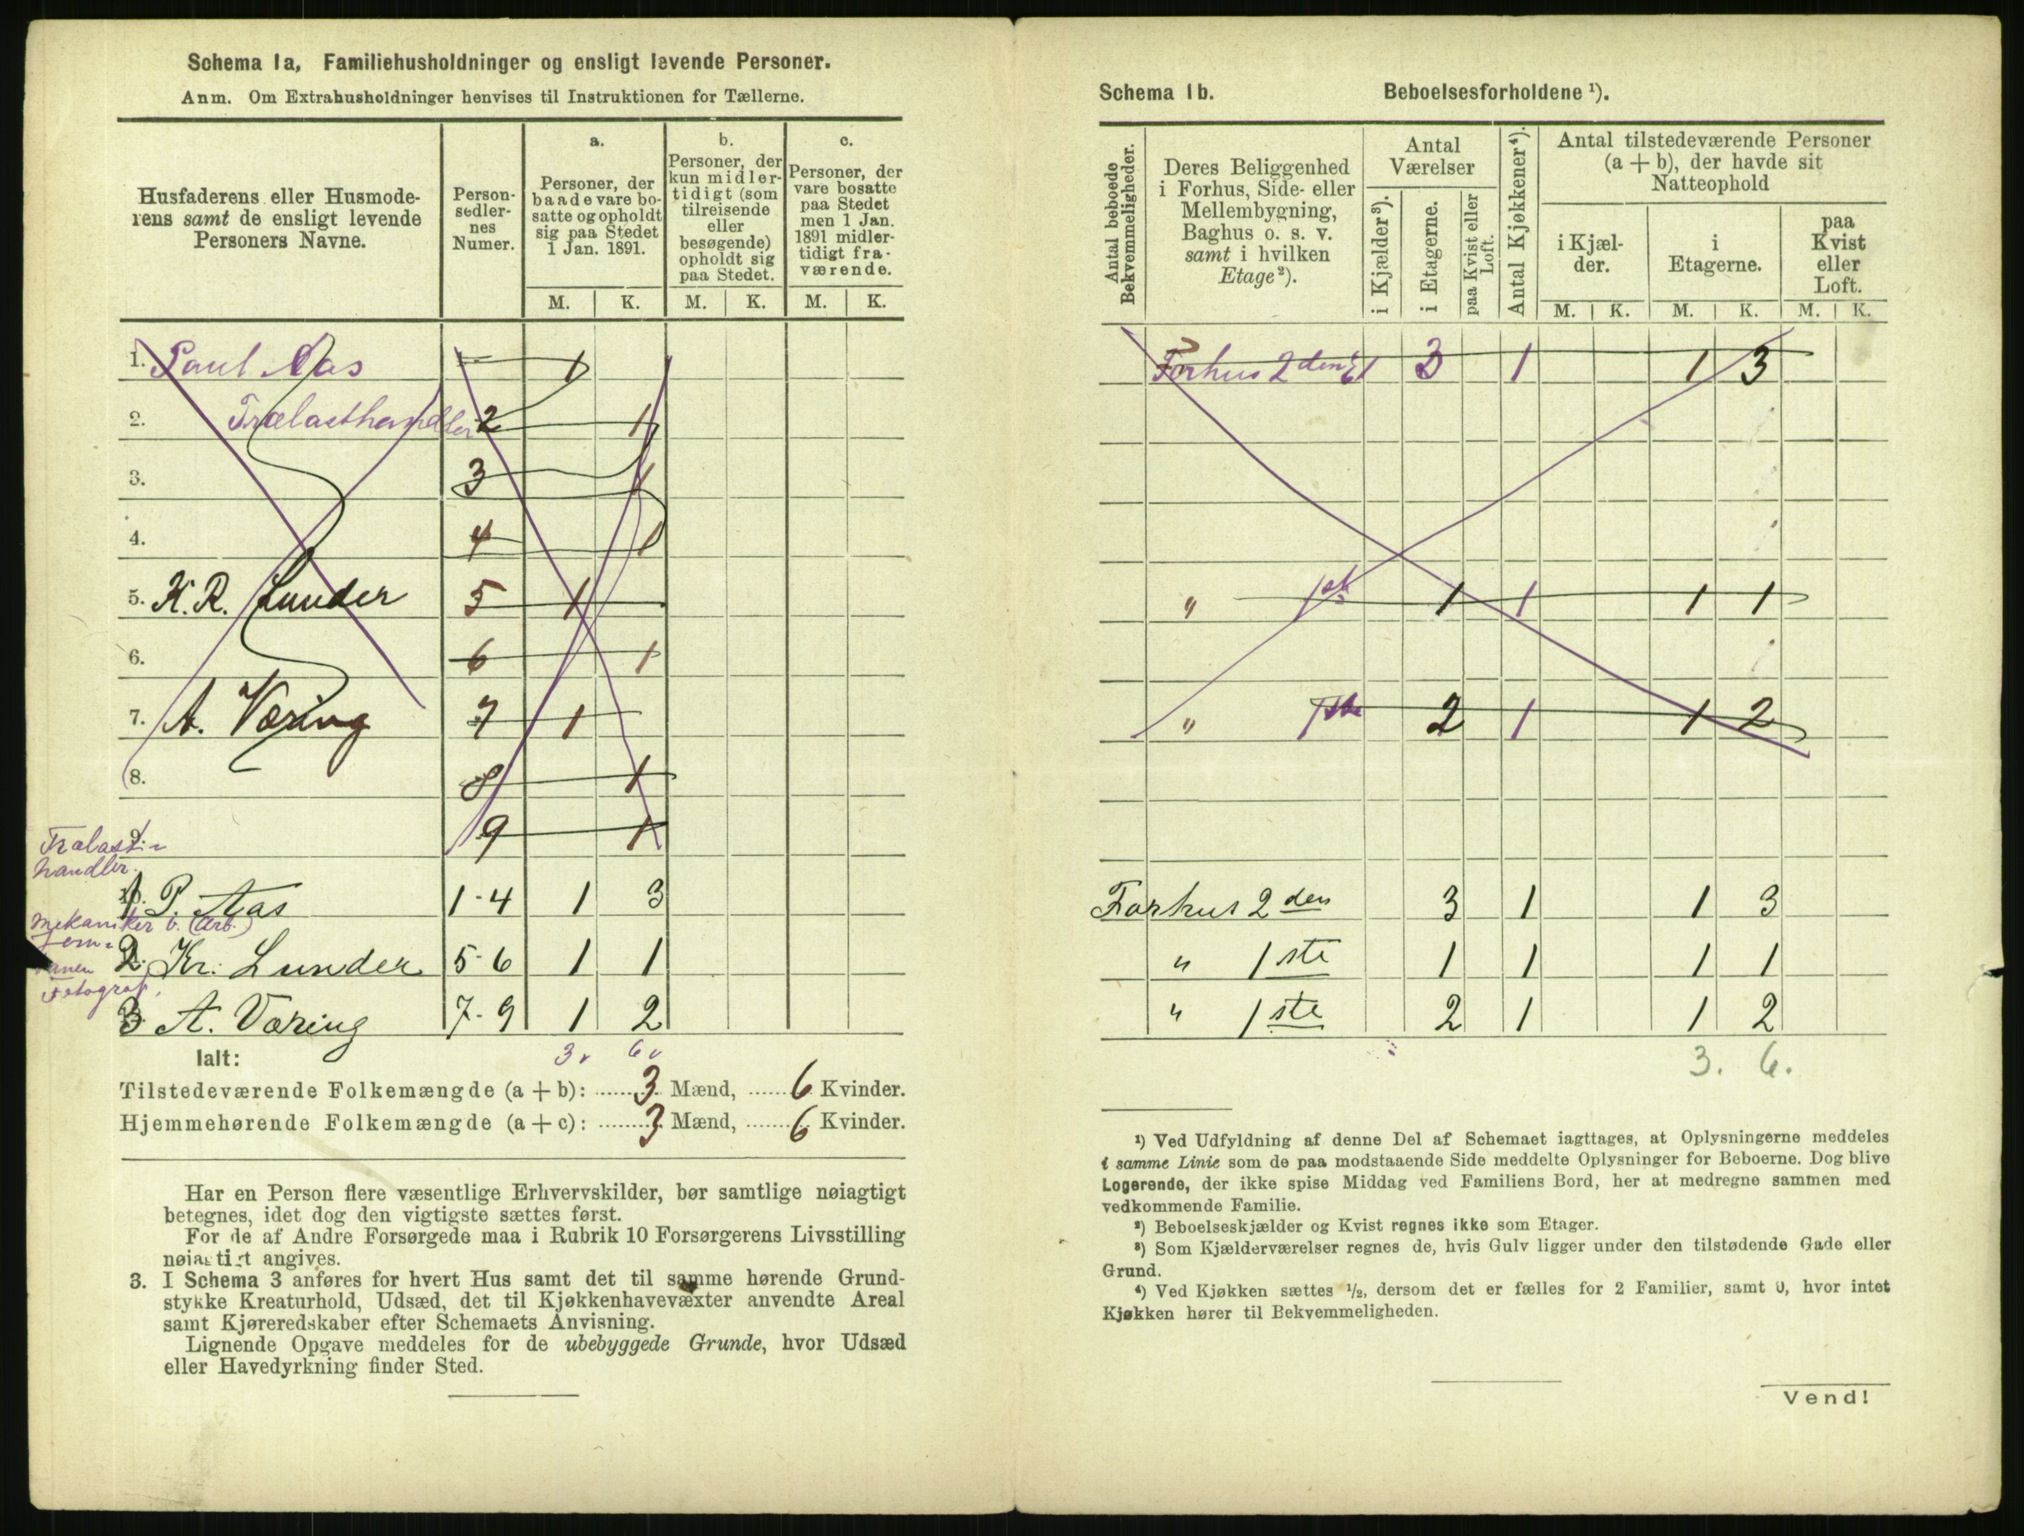 Schema 1a, Familiehusholdninger og ensligt levende Personer.
Anm. Om Extrahusholdninger henvises til Instruktionen for Tællerne.
Husfaderens eller Husmode-
rens samt de ensligt levende
Personers Navne.
Person-
sedler-
nes
Numer.
a.
Personer, der
baade vare bo-
satte og opholdt
sig paa Stedet
1 Jan. 1891.
b.
Personer, der
kun midler-
tidigt (som
tilreisende
eller
besøgende)
opholdt sig
paa Stedet.
c.
Personer, der
vare bosatte
paa Stedet
men 1 Jan.
1891 midler-
tidigt fra-
værende.
M. K. M. K. M. K.
1. Paul Aas 1 1
2. Trælasthandler 2 1
3. 3 1
4. 4 1
5. K. R. Lunder 5 1
6. 6 1
7. A. Væring 7 1
8. 8 1
9. 9 1
Trælast-
handler.
1 P. Aas 1-4 1 3
Mekaniker v. (arb.)
2. Kr. Lunder 5-6 1 1
Fotograf,
3 A. Væring 7-9 1 2
Ialt: 3 6
Tilstedeværende Folkemængde (a + b): 3 Mænd, 6 Kvinder.
Hjemmehørende Folkemængde (a + c): 3 Mænd, 6 Kvinder.
Har en Person flere væsentlige Erhvervskilder, bør samtlige nøiagtigt
betegnes, idet dog den vigtigste sættes først.
For de af Andre Forsørgede maa i Rubrik 10 Forsørgerens Livsstilling
nøiagtigt angives.
3. I Schema 3 anføres for hvert Hus samt det til samme hørende Grund-
stykke Kreaturhold, Udsæd, det til Kjøkkenhavevæxter anvendte Areal
samt Kjøreredskaber efter Schemaets Anvisning.
Lignende Opgave meddeles for de ubebyggede Grunde, hvor Udsæd
eller Havedyrkning finder Sted.
Schema 1b. Beboelsesforholdene ¹).
Antal beboede
Bekvemmeligheder.
Deres Beliggenhed
i Forhus, Side- eller
Mellembygning,
Baghus o. s. v.
samt i hvilken
Etage²).
Antal
Værelser
i Kjælder³).
i Etagerne.
paa Kvist eller
Loft.
Antal Kjøkkener⁴).
Antal tilstedeværende Personer
(a + b), der havde sit
Natteophold
i Kjæl-
der.
i
Etagerne.
paa
Kvist
eller
Loft.
M. K. M. K. M. K.
Forhus 2den 3 1 1 3
" 1ste 1 1 1 1
" 1ste 2 1 1 2
Forhus 2den 3 1 1 3
" 1ste 1 1 1 1
" 1ste 2 1 1 2
3. 6.
¹) Ved Udfyldning af denne Del af Schemaet iagttages, at Oplysningerne meddeles
i samme Linie som de paa modstaaende Side meddelte Oplysninger for Beboerne. Dog blive
Logerende, der ikke spise Middag ved Familiens Bord, her at medregne sammen med
vedkommende Familie.
²) Beboelseskjælder og Kvist regnes ikke som Etager.
³) Som Kjælderværelser regnes de, hvis Gulv ligger under den tilstødende Gade eller
Grund.
⁴) Ved Kjøkken sættes ¹/₂, dersom det er fælles for 2 Familier, samt 0, hvor intet
Kjøkken hører til Bekvemmeligheden.
Vend!